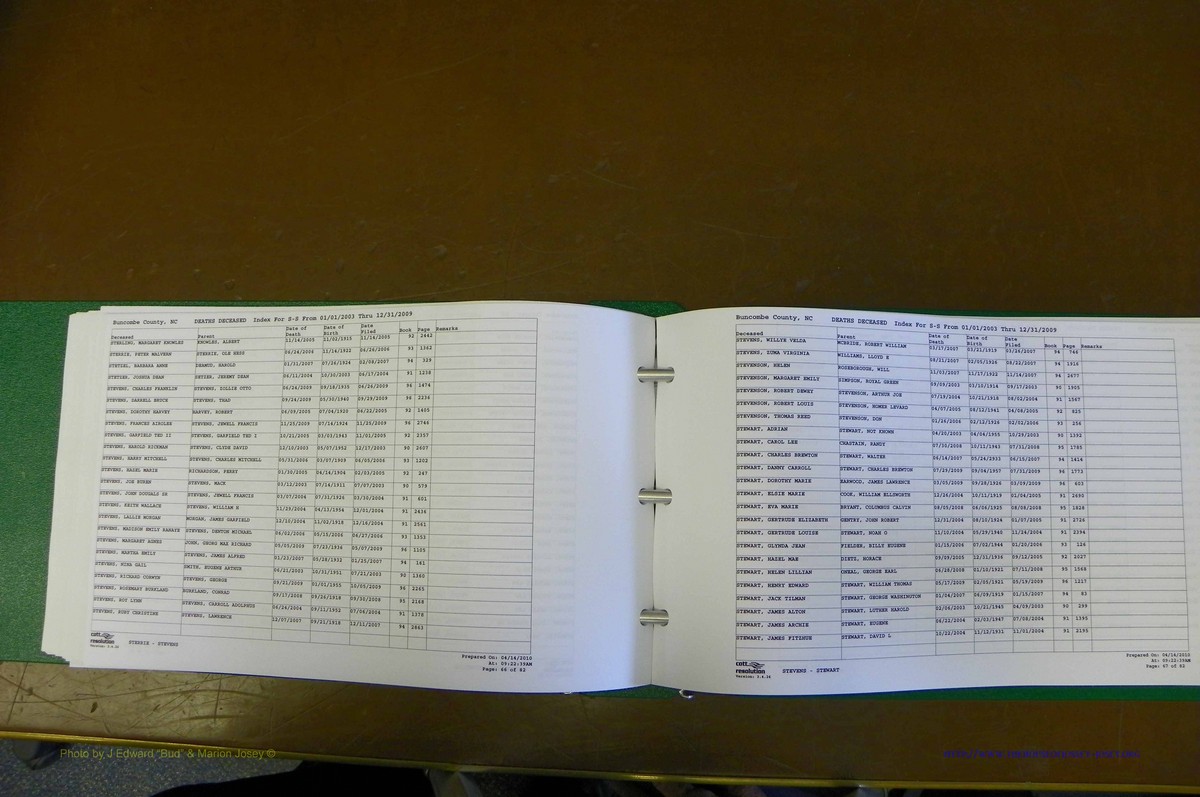 Buncombe County, NC DEATHS DECEASED Index For S-S From 01/01/2003 Thru 12/31/2009
Deceased Parent Date of Death Date of Birth Date Filed Book Page Remarks
STERLING, MARGARET KNOWLES KNOWLES, ALBERT 11/14/2005 11/02/1915 11/16/2005 92 2442
STERRIE, PETER MALVERN STERRIE, OLE HESS 06/24/2006 11/14/1922 06/26/2006 93 1362
STETZEL, BARBARA ANNE 01/31/2007 07/26/1924 02/08/2007 94 329
STETZER, JOSHUA DEAN 06/11/2004 10/30/2003 06/17/2004 91 1238
STEVENS, CHARLES FRANKLIN STEVENS, ZOLLIE OTTO 06/24/2009 09/18/1935 06/26/2009 96 1474
STEVENS, DARRELL BRUCE STEVENS, THAD 09/24/2009 05/30/1940 09/29/2009 96 2236
STEVENS, DOROTHY HARVEY HARVEY, ROBERT 06/09/2005 07/04/1920 06/22/2005 92 1405
STEVENS, FRANCES AIRSLEE STEVENS, JEWELL FRANCIS 11/25/2009 07/14/1924 96 2748
STEVENS, GARFIELD TED II STEVENS, GARFIELD TED I 10/21/2005 03/03/1943 11/01/2005 92 2357
STEVENS, HAROLD HICKMAN STEVENS, CLYDE DAVID 12/10/2003 05/07/1952 12/17/2003 90 2607
STEVENS, HARRY MITCHELL STEVENS, CHARLES MITCHELL 05/31/2006 03/07/1909 06/05/2006 93 1202
STEVENS, HAZEL MARIE RICHARDSON, PERRY 01/30/2005 04/14/1904 02/03/2005 92 247
STEVENS, JOE BUREN STEVENS, MACK 03/12/2003 07/14/1911 07/07/2003 90 579
STEVENS, JOHN DOUGALS SR STEVENS, JEWELL FRANCIS 03/07/2004 07/31/1926 03/30/2004 91 601
STEVENS, KEITH WALLACE STEVENS, WILLIAM E 11/29/2004 04/13/1954 12/01/2004 91 2436
STEVENS, LALLIE MORGAN MORGAN, JAMES GARFIELD 12/10/2004 11/02/1918 12/16/2004 91 2561
STEVENS, MADISON EMILY STEVENS, DENTON MICHAEL 06/02/2006 05/15/2006 06/27/2006 93 1353
STEVENS, MARGARET AGNES JOHN, GEORG MAX RICHARD 05/05/2009 07/23/1936 05/07/2009 96 1105
STEVENS, MARTHA EMILY STEVENS, JAMES ALFRED 01/23/2007 05/28/1932 01/25/2007 94 161
STEVENS, NINA GAIL SMITH, EUGENE ARTHUR 06/21/2003 10/31/1951 07/21/2003 90 1380
STEVENS, RICHARD CORWIN STEVENS, GEORGE 09/21/2009 01/01/1955 10/05/2009 96 2265
STEVENS, ROSEMARY BURKLAND BURKLAND, CONRAD 09/17/2008 09/26/1918 09/30/2008 95 2168
STEVENS, ROY LYNN STEVENS, CARROLL ADOLPHUS 06/26/2004 09/11/1952 07/06/2004 91 1378
STEVENS, RUBY CHRISTINE STEVENS, LAWRENCE 12/07/2007 09/21/1918 12/11/2007 94 2863
cott resolution
Version: 3.4.26
STERRIE - STEVENS
Prepared On: 04/14/2010
At: 09:22:39AM
Page: 66 of 82
Buncombe County, NC DEATHS DECEASED Index For S-S From 01/01/2003 Thru 12/31/2009
Deceased Parent Date of Death Date of Birth Date Filed Book Page Remarks
STEVENS, WILLYE VELDA MCBRIDE, ROBERT WILLIAM 03/17/2007 03/21/1919 03/26/2007 94 746
STEVENS, ZUMA VIRGINIA WILLIAMS, LLOYD E 94 1916
STEVENSON, HELEN ROSEBOROUGH, WILL 11/03/2007 11/17/1922 11/14/2007 94 2677
STEVENSON, MARGARET EMILY SIMPSON, ROYAL GREEN 09/09/2003 01/10/1914 09/17/2003 90 1905
STEVENSON, ROBERT DEWEY STEVENSON, ARTHUR JOE 07/19/2004 10/21/1918 08/02/2004 91 1567
STEVENSON, ROBERT LOUIS STEVENSON, HOMER LEVARD 04/07/2005 08/12/1941 04/08/2005 92 825
STEVENSON, THOMAS REED STEVENSON, DON 01/26/2006 02/12/1926 02/02/2006 93 256
STEWART, ADRIAN STEWART, NOT KNOWN 06/20/2003 04/04/1955 10/29/2003 90 1392
STEWART, CAROL LEE CHASTAIN, RANDY 07/30/2008 10/11/1943 07/31/2008 95 1785
STEWART, CHARLES BREWTON STEWART, WALTER 06/14/2007 05/24/1933 06/15/2007 94 1414
STEWART, DANNY CARROLL STEWART, CHARLES BREWTON 07/29/2009 09/04/1957 07/31/2009 96 1773
STEWART, DOROTHY MARIE EARWOOD, JAMES LAWRENCE 03/05/2009 09/28/1926 03/09/2009 96 603
STEWART, ELSIE MARIE COOK, WILLIAM ELLSWORTH 12/26/2004 10/11/1919 01/04/2005 91 2690
STEWART, EVA MARIE BRYANT, COLUMBUS CALVIN 08/05/2008 06/06/1925 08/08/2008 95 1828
STEWART, GERTRUDE ELIZABETH GENTRY, JOHN ROBERT 12/31/2004 08/10/1924 01/07/2005 91 2726
STEWART, GERTRUDE LOUISE STEWART, NOAH O 11/10/2004 05/29/1940 11/24/2004 91 2394
STEWART, GLYNDA JEAN FIELDER, BILLY EUGENE 01/15/2006 07/02/1944 01/20/2006 93 126
STEWART, HAZEL MAE DIETZ, HORACE 09/09/2005 12/31/1936 09/12/2005 92 2027
STEWART, HELEN LILLIAN ONEAL, GEORGE EARL 06/28/2008 01/10/1921 07/11/2008 95 1568
STEWART, HENRY EDWARD STEWART, WILLIAM THOMAS 05/17/2009 02/05/1921 05/19/2009 96 1217
STEWART, JACK TILMAN STEWART, GEORGE WASHINGTON 01/04/2007 06/09/1919 01/15/2007 94 83
STEWART, JAMES ALTON STEWART, LUTHER HAROLD 02/06/2003 10/31/1945 04/09/2003 90 299
STEWART, JAMES ARCHIE STEWART, EUGENE 06/22/2004 02/03/1947 07/08/2004 91 1395
STEWART, JAMES FITZHUE STEWART, DAVID L 10/22/2004 11/12/1931 11/01/2004 91 2195
cott resolution
Version: 3.4.26
STEVENS - STEWART
Prepared On: 04/14/2010
At: 09:22:39AM
Page: 67 of 82
Photo by J Edward "Bud" & Marion Josey ©